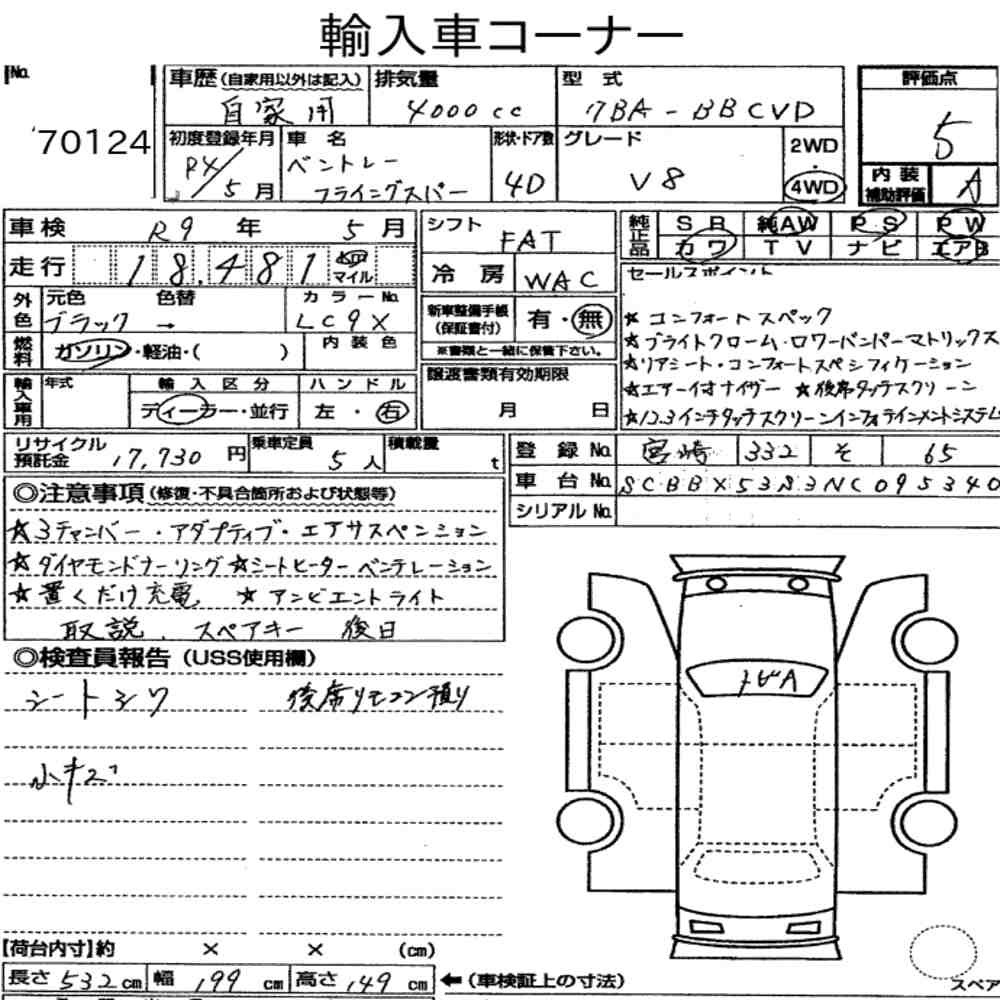 輸入車コーナー
No. 70124
車歴(自家用以外は記入) 自家用
排気量 4000cc
型式 7BA-BBCVD
評価点 5
初度登録年月 R4/5月
車名 ベントレー フライングスパー
形状・ドア数 4D
グレード V8
2WD・4WD
内装補助評価 A
車検 R9年 5月
シフト FAT
純正品 SR 純AW PS PW
カワ TV ナビ エアB
走行 18,481 km マイル
冷房 WAC
セールスポイント
外色 元色 ブラック 色替 →
カラーNo. LC9X
内装色
新車整備手帳(保証書付) 有・無
※書類と一緒に保管下さい。
★コンフォートスペック
★ブライトクローム・ロワーバンパーマトリックス
★リアシート・コンフォートスペシフィケーション
★エアーイオナイザー ★後席タッチスクリーン
★12.3インチタッチスクリーンインフォテインメントシステム
燃料 ガソリン・軽油・( )
輸入車用 年式
輸入区分 ディーラー・並行
ハンドル 左・右
譲渡書類有効期限 月 日
リサイクル預託金 17,730円
乗車定員 5人
積載量 t
登録No. 宮崎 332 そ 65
車台No. SCBBX53S3NC095340
シリアルNo.
◎注意事項(修復・不具合箇所および状態等)
★3チャンバー・アダプティブ・エアサスペンション
★ダイヤモンドナーリング ★シートヒーターベンテレーション
★置くだけ充電 ★アンビエントライト
取説、スペアキー 後日
◎検査員報告(USS使用欄)
シートシワ 後席リモコン預り
小キズ
トビA
【荷台内寸】約 × × (cm)
長さ532cm 幅199cm 高さ149cm ←(車検証上の寸法)
スペア